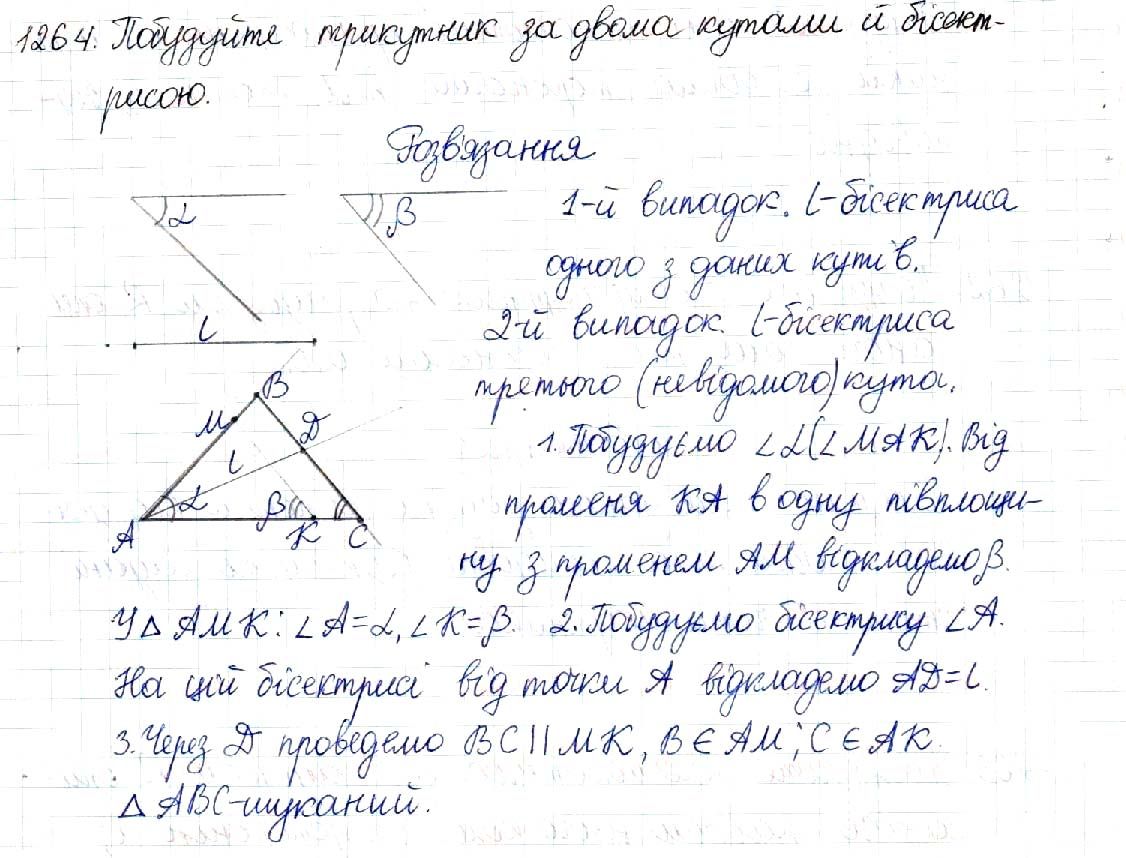 1264. Побудуйте трикутник за двома кутами й бісект-
рисою.
Розв'язання
α β
1-й випадок. l-бісектриса
одного з даних кутів.
l
2-й випадок. l-бісектриса
третього (невідомого) кута.
B
M D
l
α β
A K C
1. Побудуємо ∠α(∠MAK). Від
променя KA в одну півплощи-
ну з променем AM відкладемо β.
У △ AMK: ∠A=α, ∠K=β. 2. Побудуємо бісектрису ∠A.
На цій бісектрисі від точки A відкладемо AD=l.
3. Через D проведемо BC || MK, B ∈ AM; C ∈ AK.
△ ABC-шуканий.